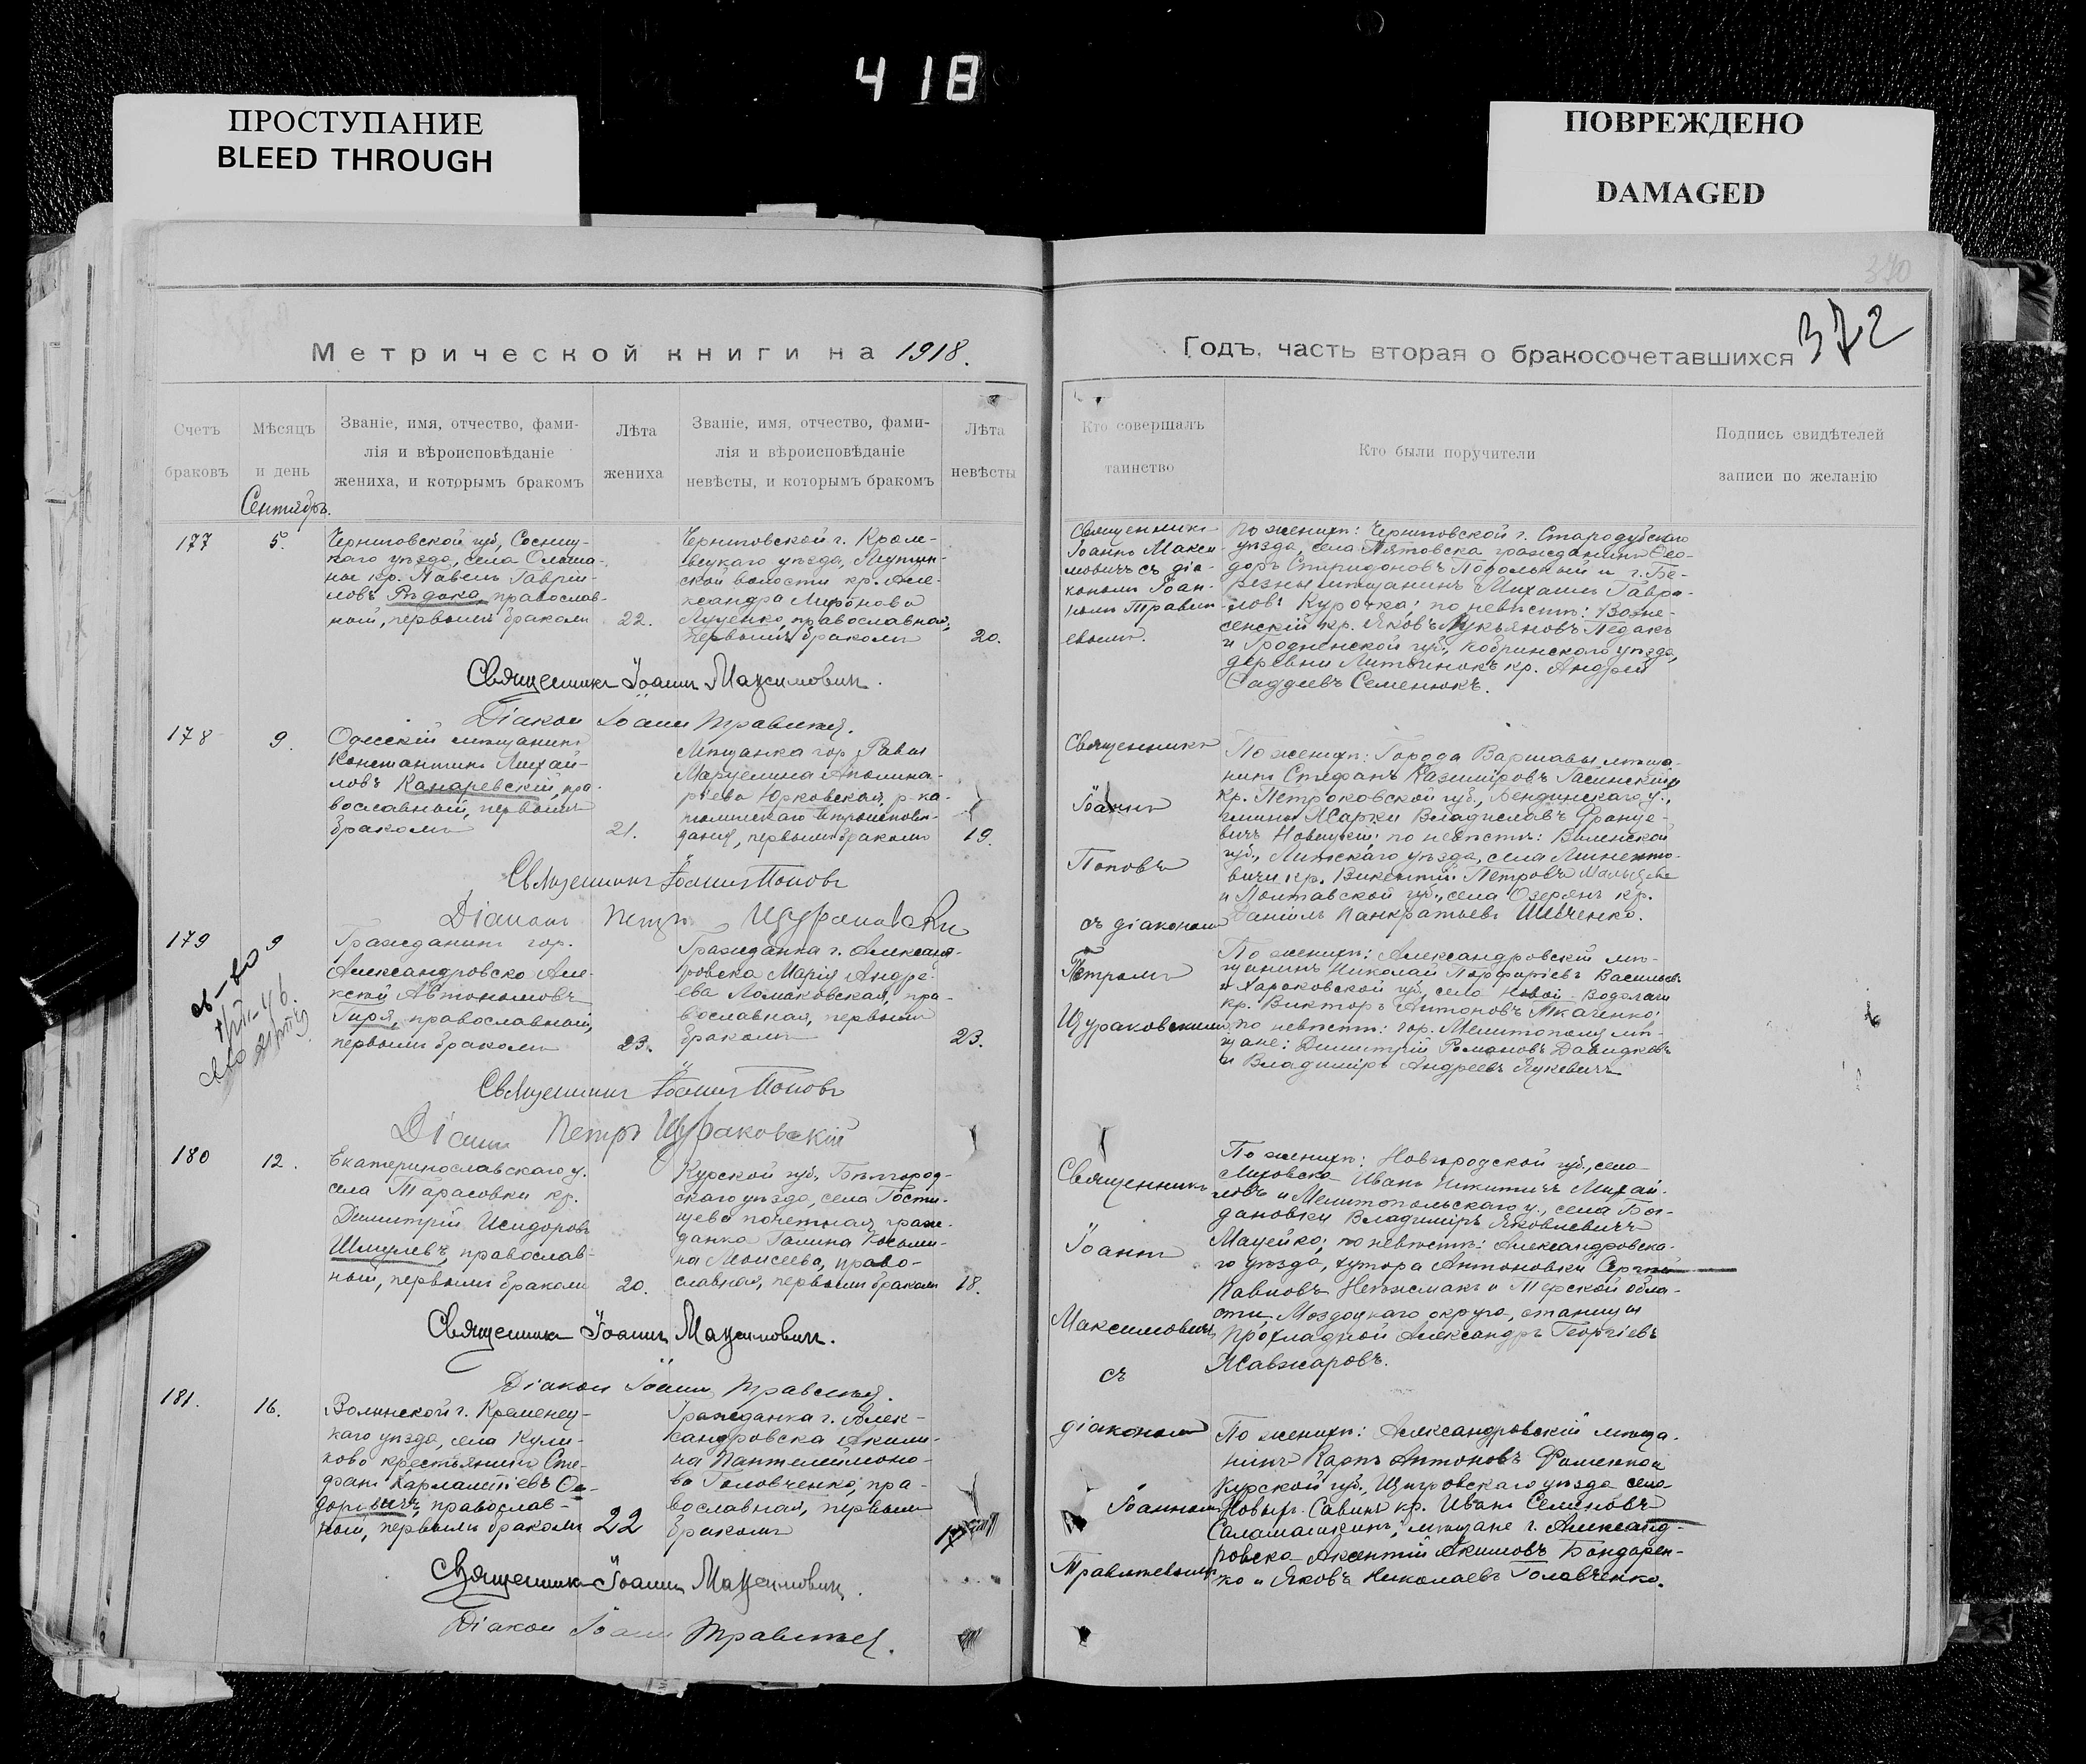 418
ПРОСТУПАНИЕ
BLEED THROUGH
ПОВРЕЖДЕНО
DAMAGED
370
372
Метрической книги на 1918.
Годъ, часть вторая о бракосочетавшихся
Счетъ
браковъ
Мѣсяцъ
и день
Званіе, имя, отчество, фами-
лія и вѣроисповѣданіе
жениха, и которымъ бракомъ
Лѣта
жениха
Званіе, имя, отчество, фами-
лія и вѣроисповѣданіе
невѣсты, и которымъ бракомъ
Лѣта
невѣсты
Кто совершалъ
таинство
Кто были поручители
Подпись свидѣтелей
записи по желанію
Сентябрь.
177
5.
Черниговской губ., Сосниц-
каго уѣзда, села Ольша-
ное кр. Павелъ Гавріи-
ловъ Рѣдка, православ-
ный, первымъ бракомъ
22.
Черниговской г. Кроле-
вецкаго уѣзда,
ской волости кр. Але-
ксандра Миронова
Луценко, православная,
первымъ бракомъ
20.
Священникъ
Іоаннъ Макси-
мовичъ съ діа-
кономъ Іоан-
номъ Травли-
евымъ.
По женихѣ: Черниговской г. Стародубскаго
уѣзда, села Пятовска гражданинъ Ѳео-
доръ Спиридоновъ Подольный и г. Бе-
резны мѣщанинъ Михаилъ Гаври-
ловъ Курочка; по невѣстѣ: Возне-
сенскій кр. Яковъ Лукьяновъ Педакъ
и Гродненской губ., Кобринскаго уѣзда,
деревни кр. Андрей
Ѳаддеевъ Семенюкъ.
Священникъ Іоаннъ Максимович.
Діакон Іоанн
178
9.
Одесскій мѣщанинъ
Константинъ Михай-
ловъ Канаревскій, пра-
вославный, первымъ
бракомъ
21.
Мѣщанка гор. Равы
Марцелина Аполина-
ріева Юрковская, р-ка-
толическаго вѣроисповѣ-
данія, первымъ бракомъ
19.
Священникъ
Іоаннъ
Поповъ
съ діакономъ
Петромъ
Щураковскимъ
По женихѣ: Города Варшавы мѣща-
нинъ Стефанъ Казиміровъ Гасинскій и
кр. Петроковской губ., Бендинскаго у.,
гмины Жарки Владиславъ Франце-
вичъ Новицкій; по невѣстѣ: Виленской
губ., Лидскаго уѣзда, села
вичи кр. Викентій Петровъ
и Полтавской губ., села Озерянъ кр.
Даніилъ Панкратьевъ Шевченко.
Священникъ Іоаннъ Поповъ
Діаконъ Петръ Щураковскій
179
9
Гражданинъ гор.
Александровска Але-
ксѣй Автономовъ
Гиря, православный,
первымъ бракомъ
23.
Гражданка г. Алексан-
дровска Марія Андре-
ева Ломаковская, пра-
вославная, первымъ
бракомъ
23.
По женихѣ: Александровскій мѣ-
щанинъ Николай Порфиріевъ Васильевъ
и Харьковской губ. села Новой-Водолаги
кр. Викторъ Антоновъ Ткаченко;
по невѣстѣ: гор. Мелитополя мѣ-
щане: Димитрій Романовъ Давидковъ
и Владиміръ Андреевъ Яцкевичъ
Священникъ Іоаннъ Поповъ
Діакон Петръ Щураковскій
180
12.
Екатеринославскаго у.
села Тарасовки кр.
Димитрій Исидоровъ
Шмулевъ, православ-
ный, первымъ бракомъ
20.
Курской губ., Бѣлгород-
скаго уѣзда, села Гости-
щева почетная граж-
данка Галина Косьми-
на Моисеева, право-
славная, первымъ бракомъ
18.
Священникъ
Іоаннъ
Максимовичъ
съ
діакономъ
Іоанномъ
По женихѣ: Новгородской губ., села
Иванъ Никитичъ Михай-
ловъ и Мелитопольскаго у., села Бог-
дановки Владиміръ Яковлевичъ
Мацейко; по невѣстѣ: Александровска-
го уѣзда, хутора Антоновки Сергѣй
Павловъ и Терской обла-
сти, Моздоцкаго округа, станицы
Прохладной Александръ Георгіевъ
Жавжаровъ.
Священникъ Іоаннъ Максимович.
Діакон Іоанн
181.
16.
Волынской г. Кременец-
каго уѣзда, села Кули-
ково крестьянинъ Сте-
фанъ Харлампіевъ Ѳе-
доровичъ, православ-
ный, первымъ бракомъ
22
Гражданка г. Алек-
сандровска Акили-
на Пантелеймоно-
ва Головченко, пра-
вославная, первымъ
бракомъ
17
По женихѣ: Александровскій мѣща-
нинъ Карпъ Антоновъ Фоменко и
Курской губ., Щигровскаго уѣзда села
Новыхъ-Савинъ кр. Иванъ Семеновъ
Саламашкинъ; мѣщане г. Александ-
ровска Аксентій Акимовъ Бондарен-
ко и Яковъ Николаевъ Головченко.
Священникъ Іоаннъ Максимович.
Діакон Іоанн